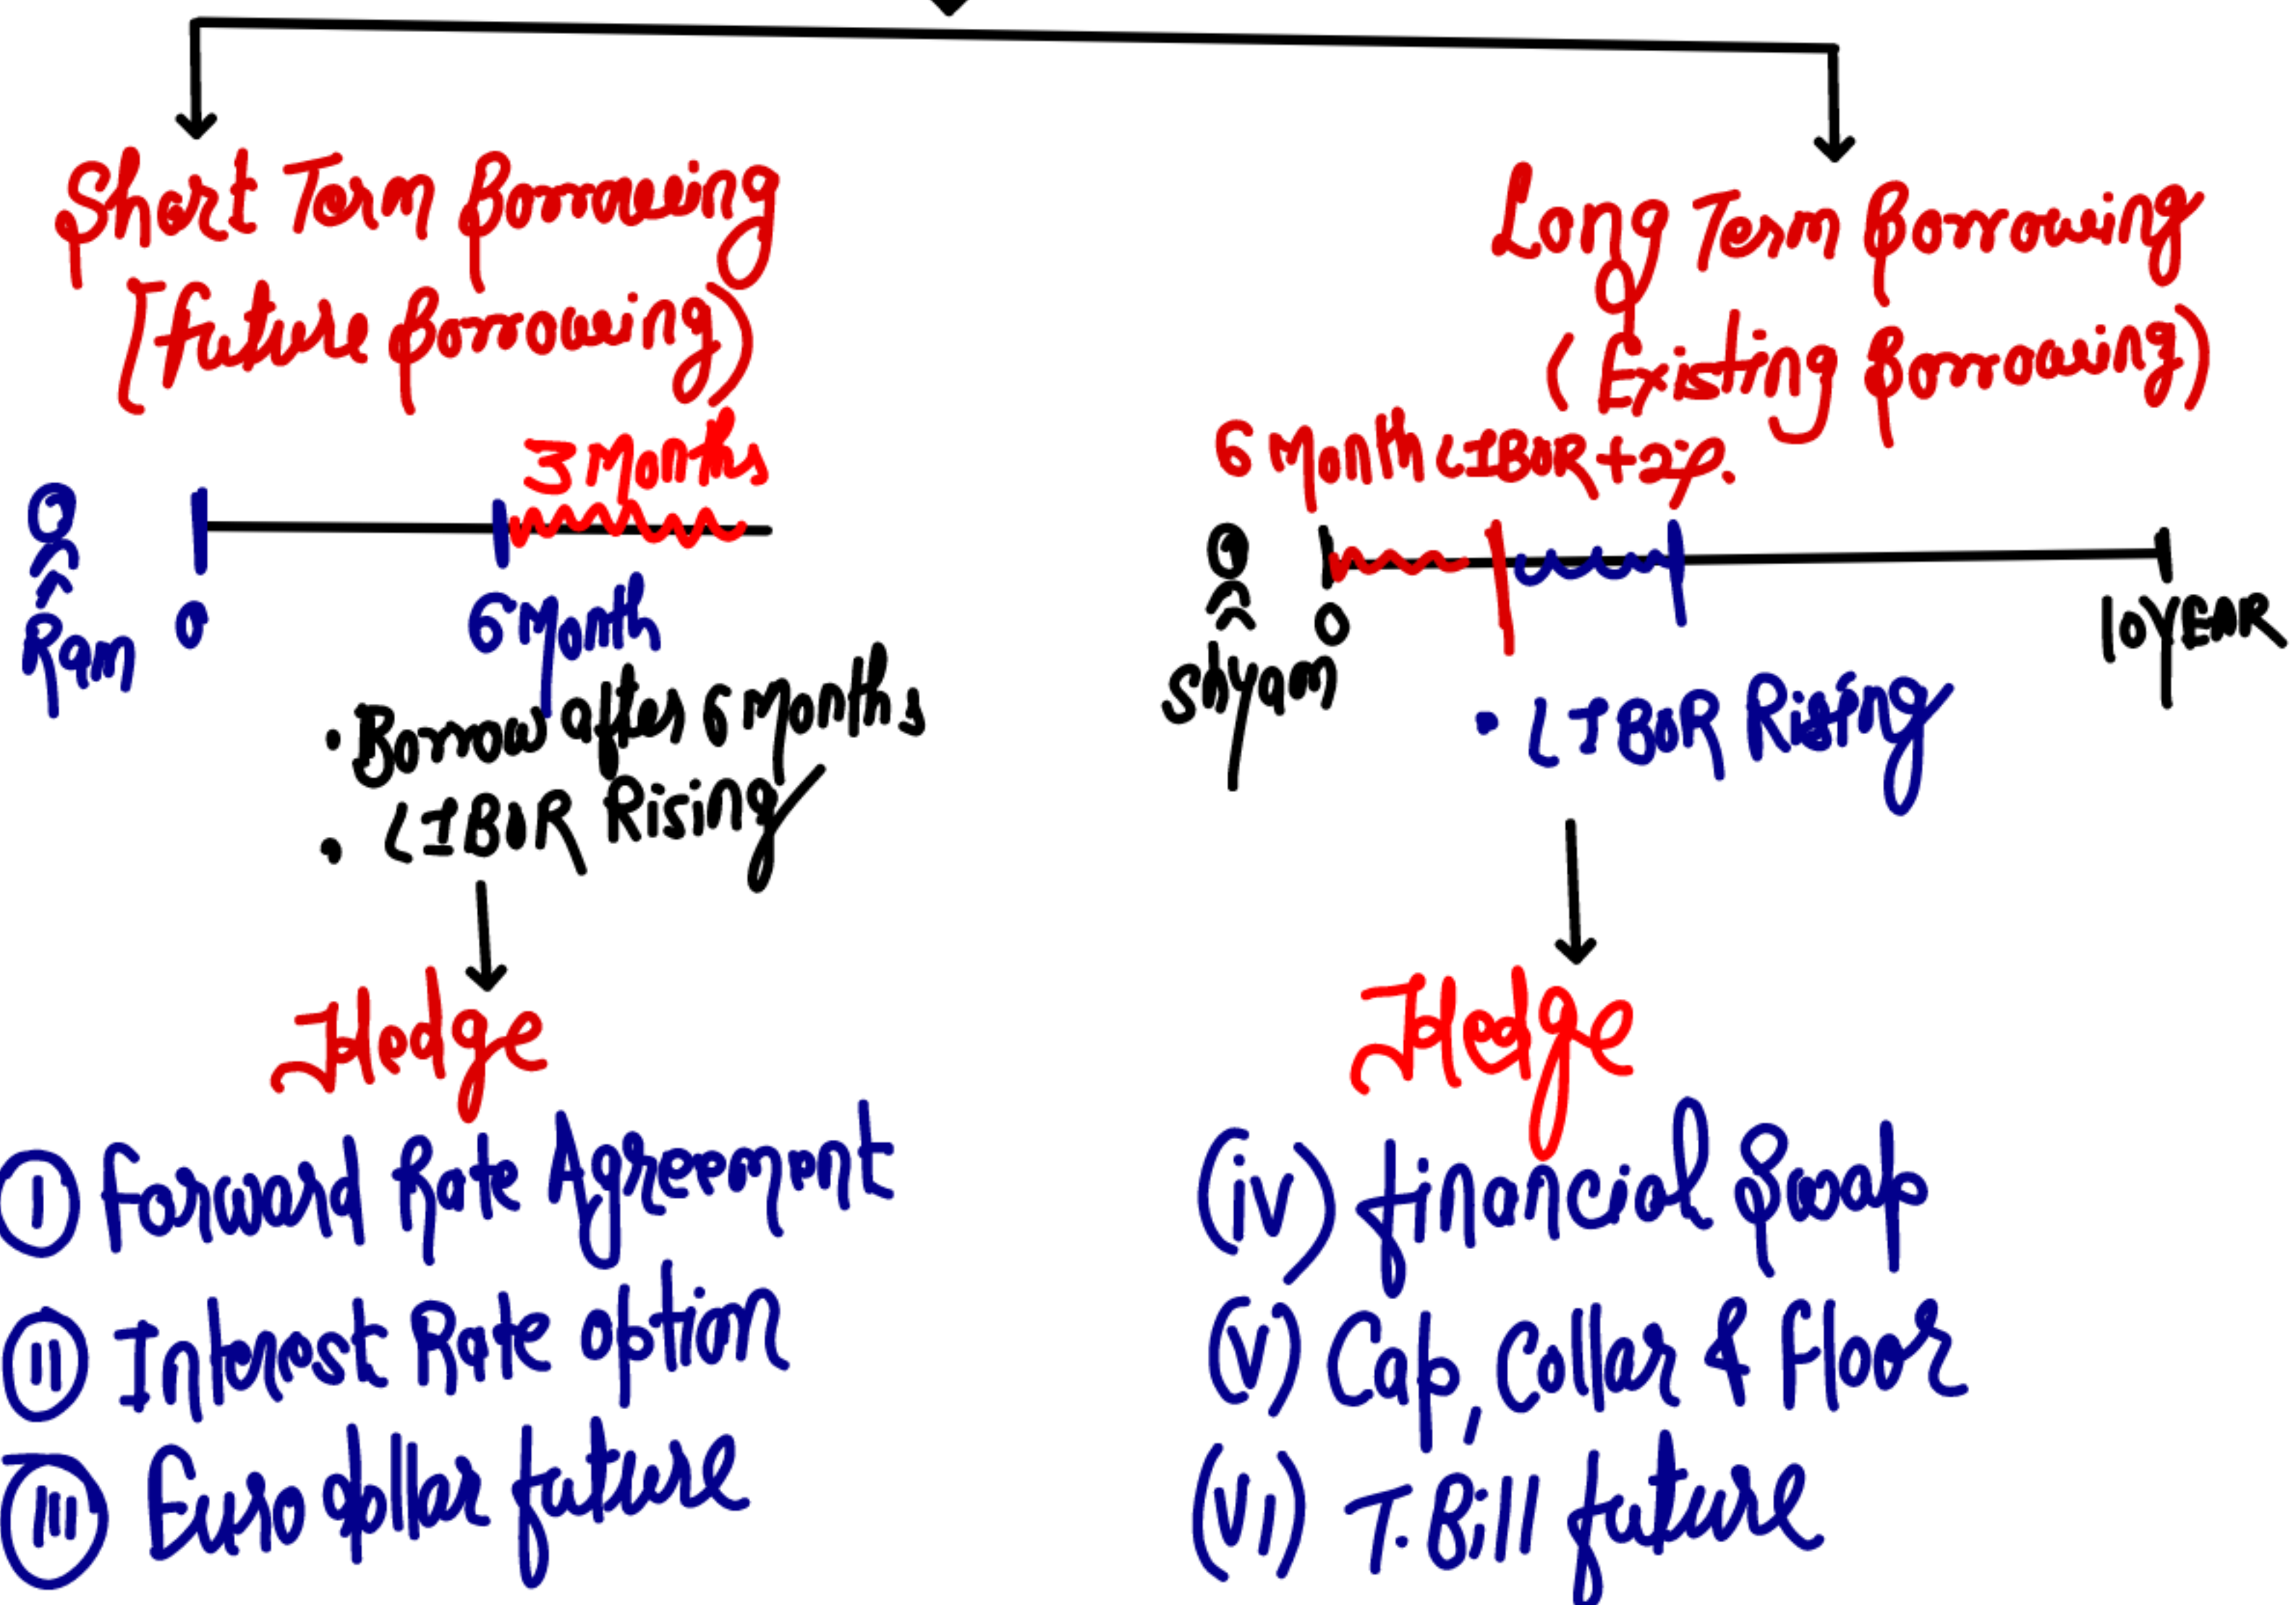 Short Term Borrowing
[Future Borrowing)
3 Months
Ram
0
6 Month
• Borrow after 6 Months
• LIBOR Rising
Hedge
I Forward Rate Agreement
II Interest Rate option
III Euro dollar future
Long Term Borrowing
(Existing Borrowing)
6 Month LIBOR + 2%.
Shyam
0
10 YEAR
• LIBOR Rising
Hedge
(iv) financial Swap
(v) Cap, Collar & Floor
(vi) T. Bill future